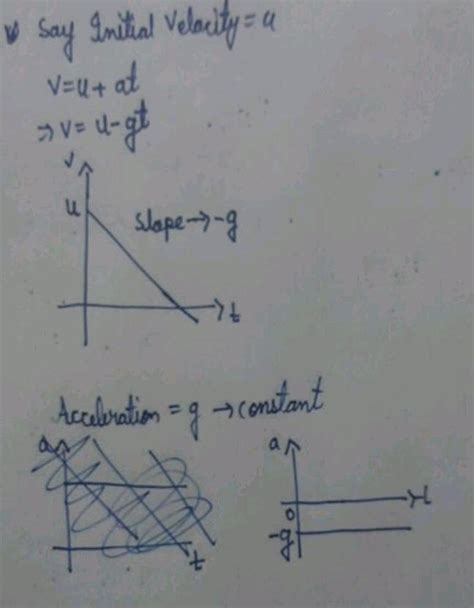 Say Initial Velocity = u
v = u + at
⇒ v = u - gt
v
u
slope → -g
t
Acceleration = g → constant
a
t
a
0
-g
t